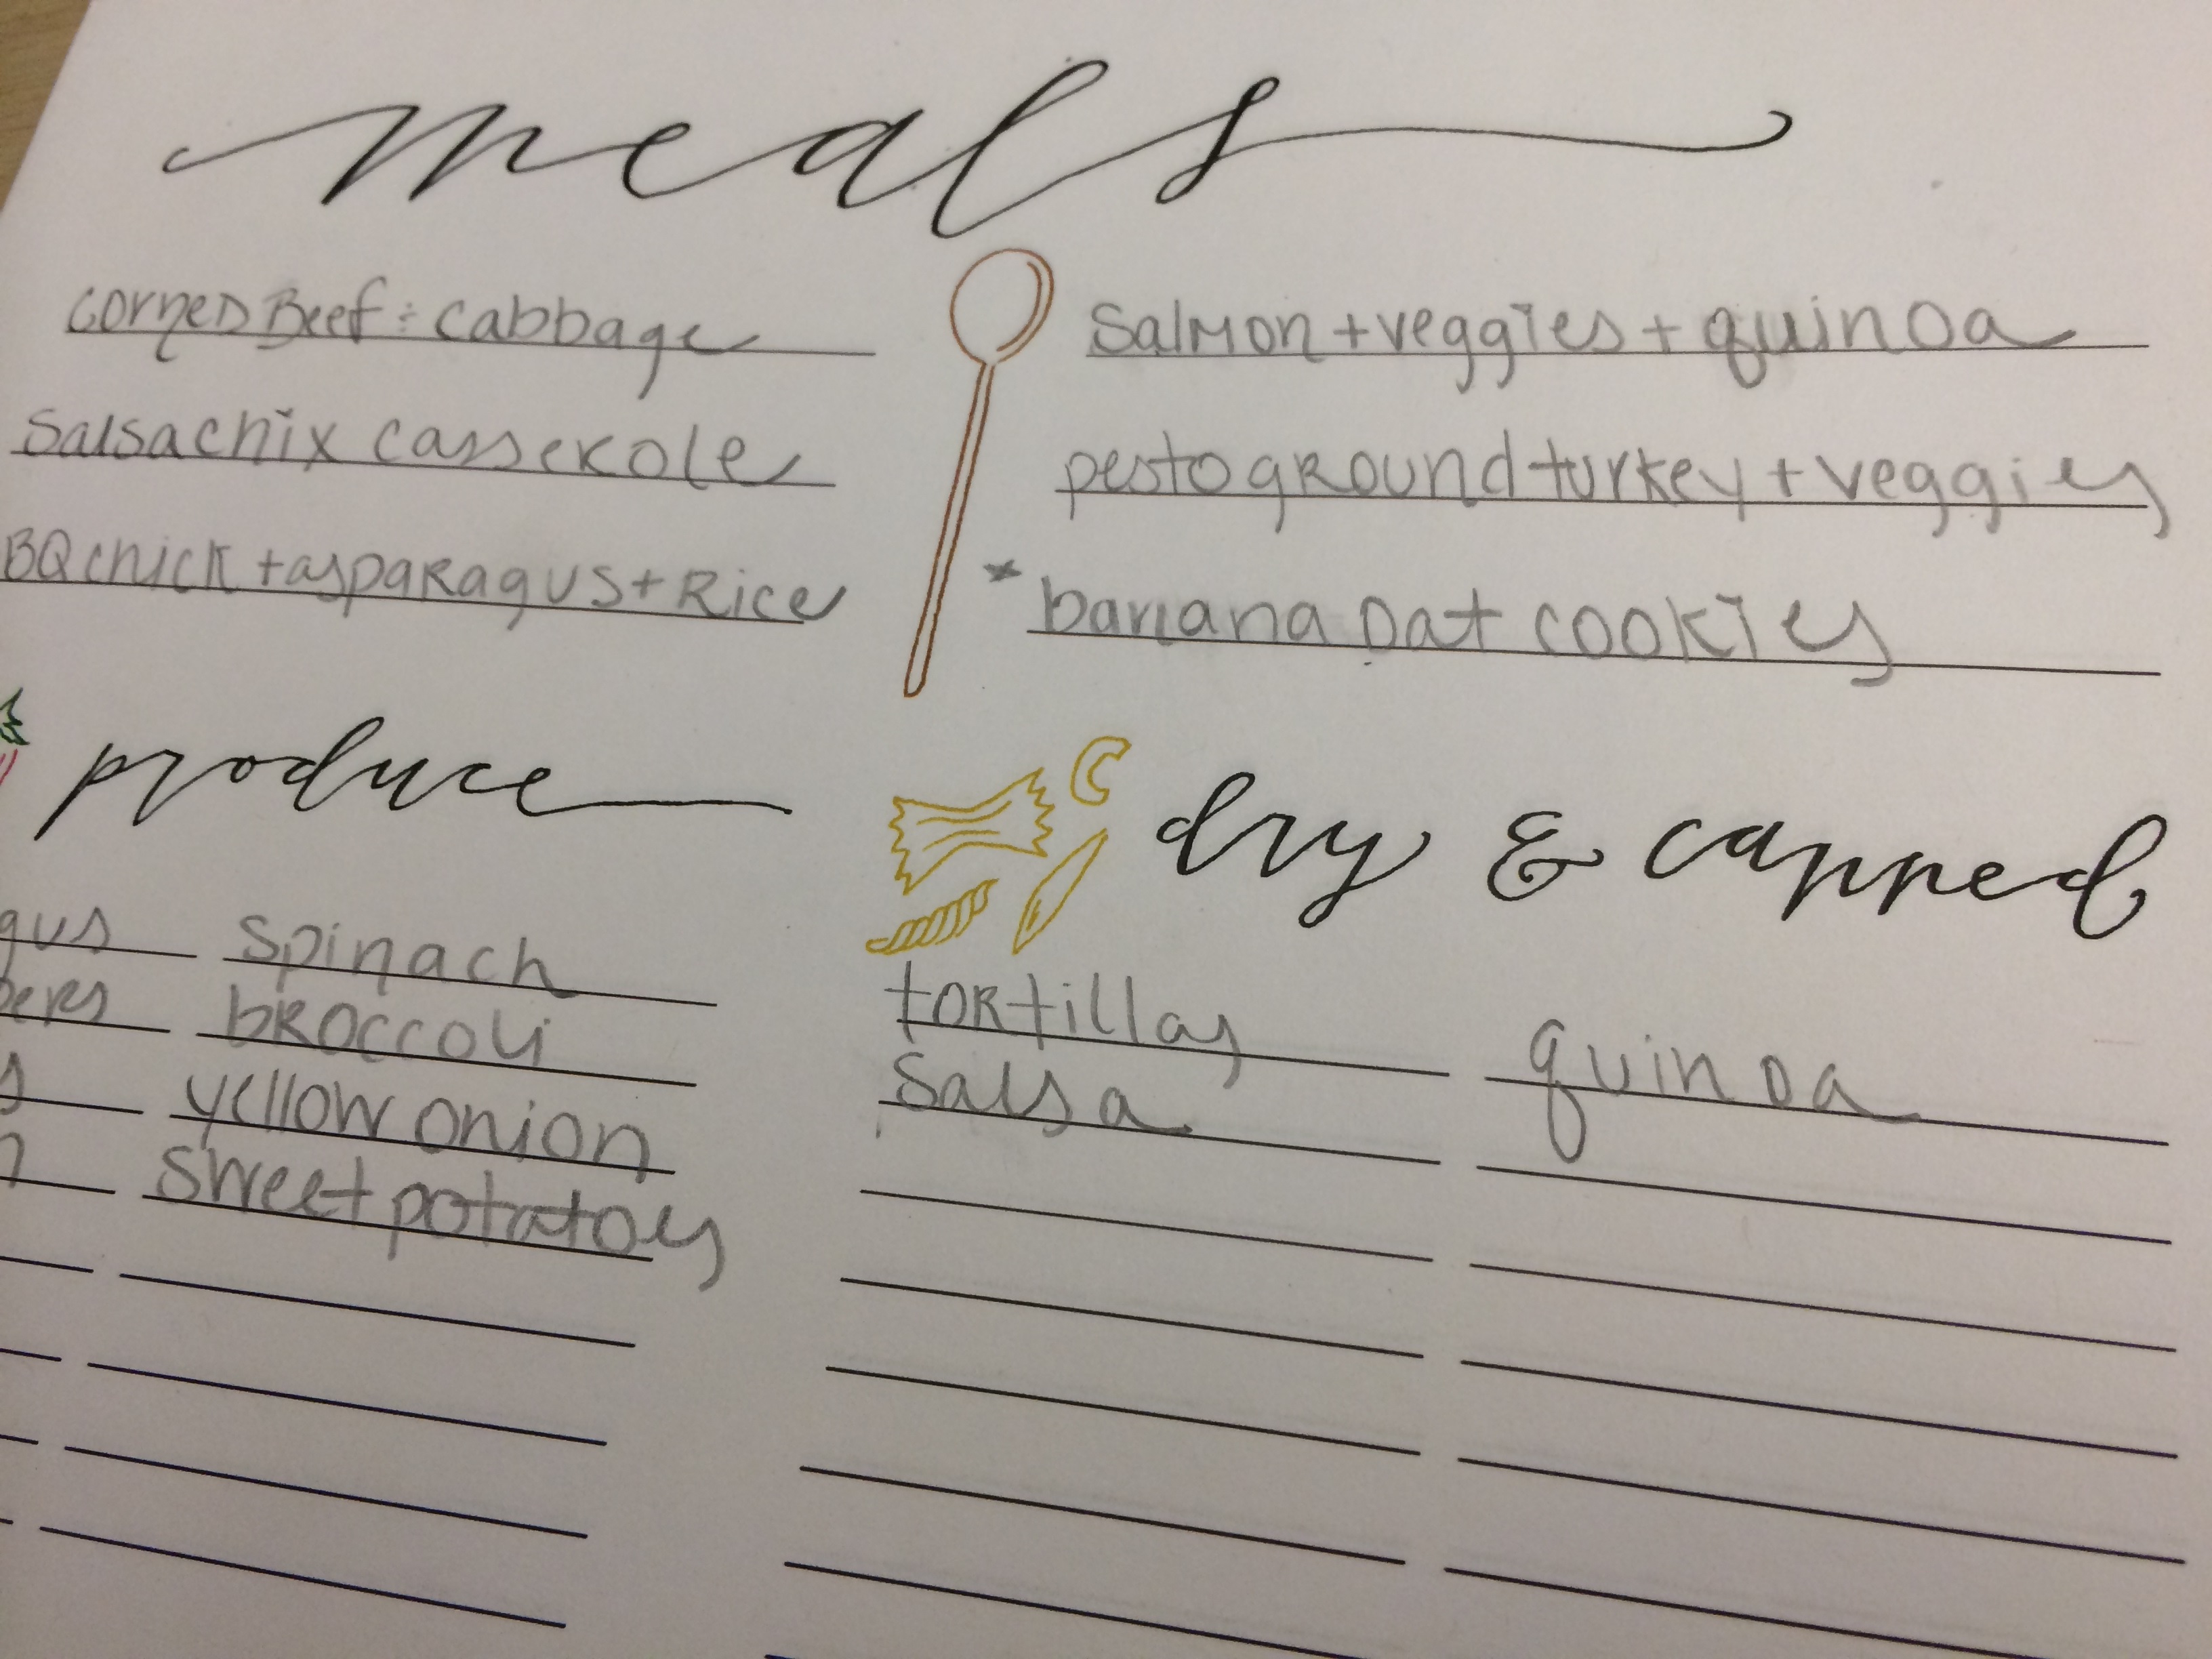 meals
corned Beef + cabbage
Salsa chix casserole
BQ chick + asparagus + Rice
Salmon + veggies + quinoa
pesto ground turkey + veggies
* banana oat cookies
produce
gus
pers
s
spinach
broccoli
yellow onion
sweet potatoes
dry & canned
tortillas
Salsa
quinoa